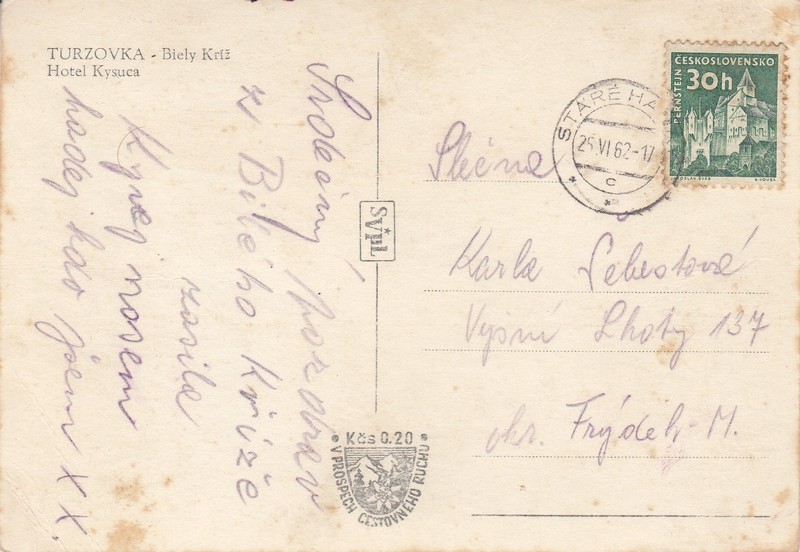 TURZOVKA - Biely Kríž
Hotel Kysuca
Srdečný pozdrav
z Bílého Kříže
zasíla
Kývej nosem
hadej kdo jsem X X.
SVÚL
Kčs 0.20
V PROSPECH CESTOVNÉHO RUCHU
STARÉ HA
25.VI 62-17
c
ČESKOSLOVENSKO
30h
PERNŠTEJN
Slečna
Karla Šebestová
Vyšní Lhoty 137
okr. Frýdek-M.